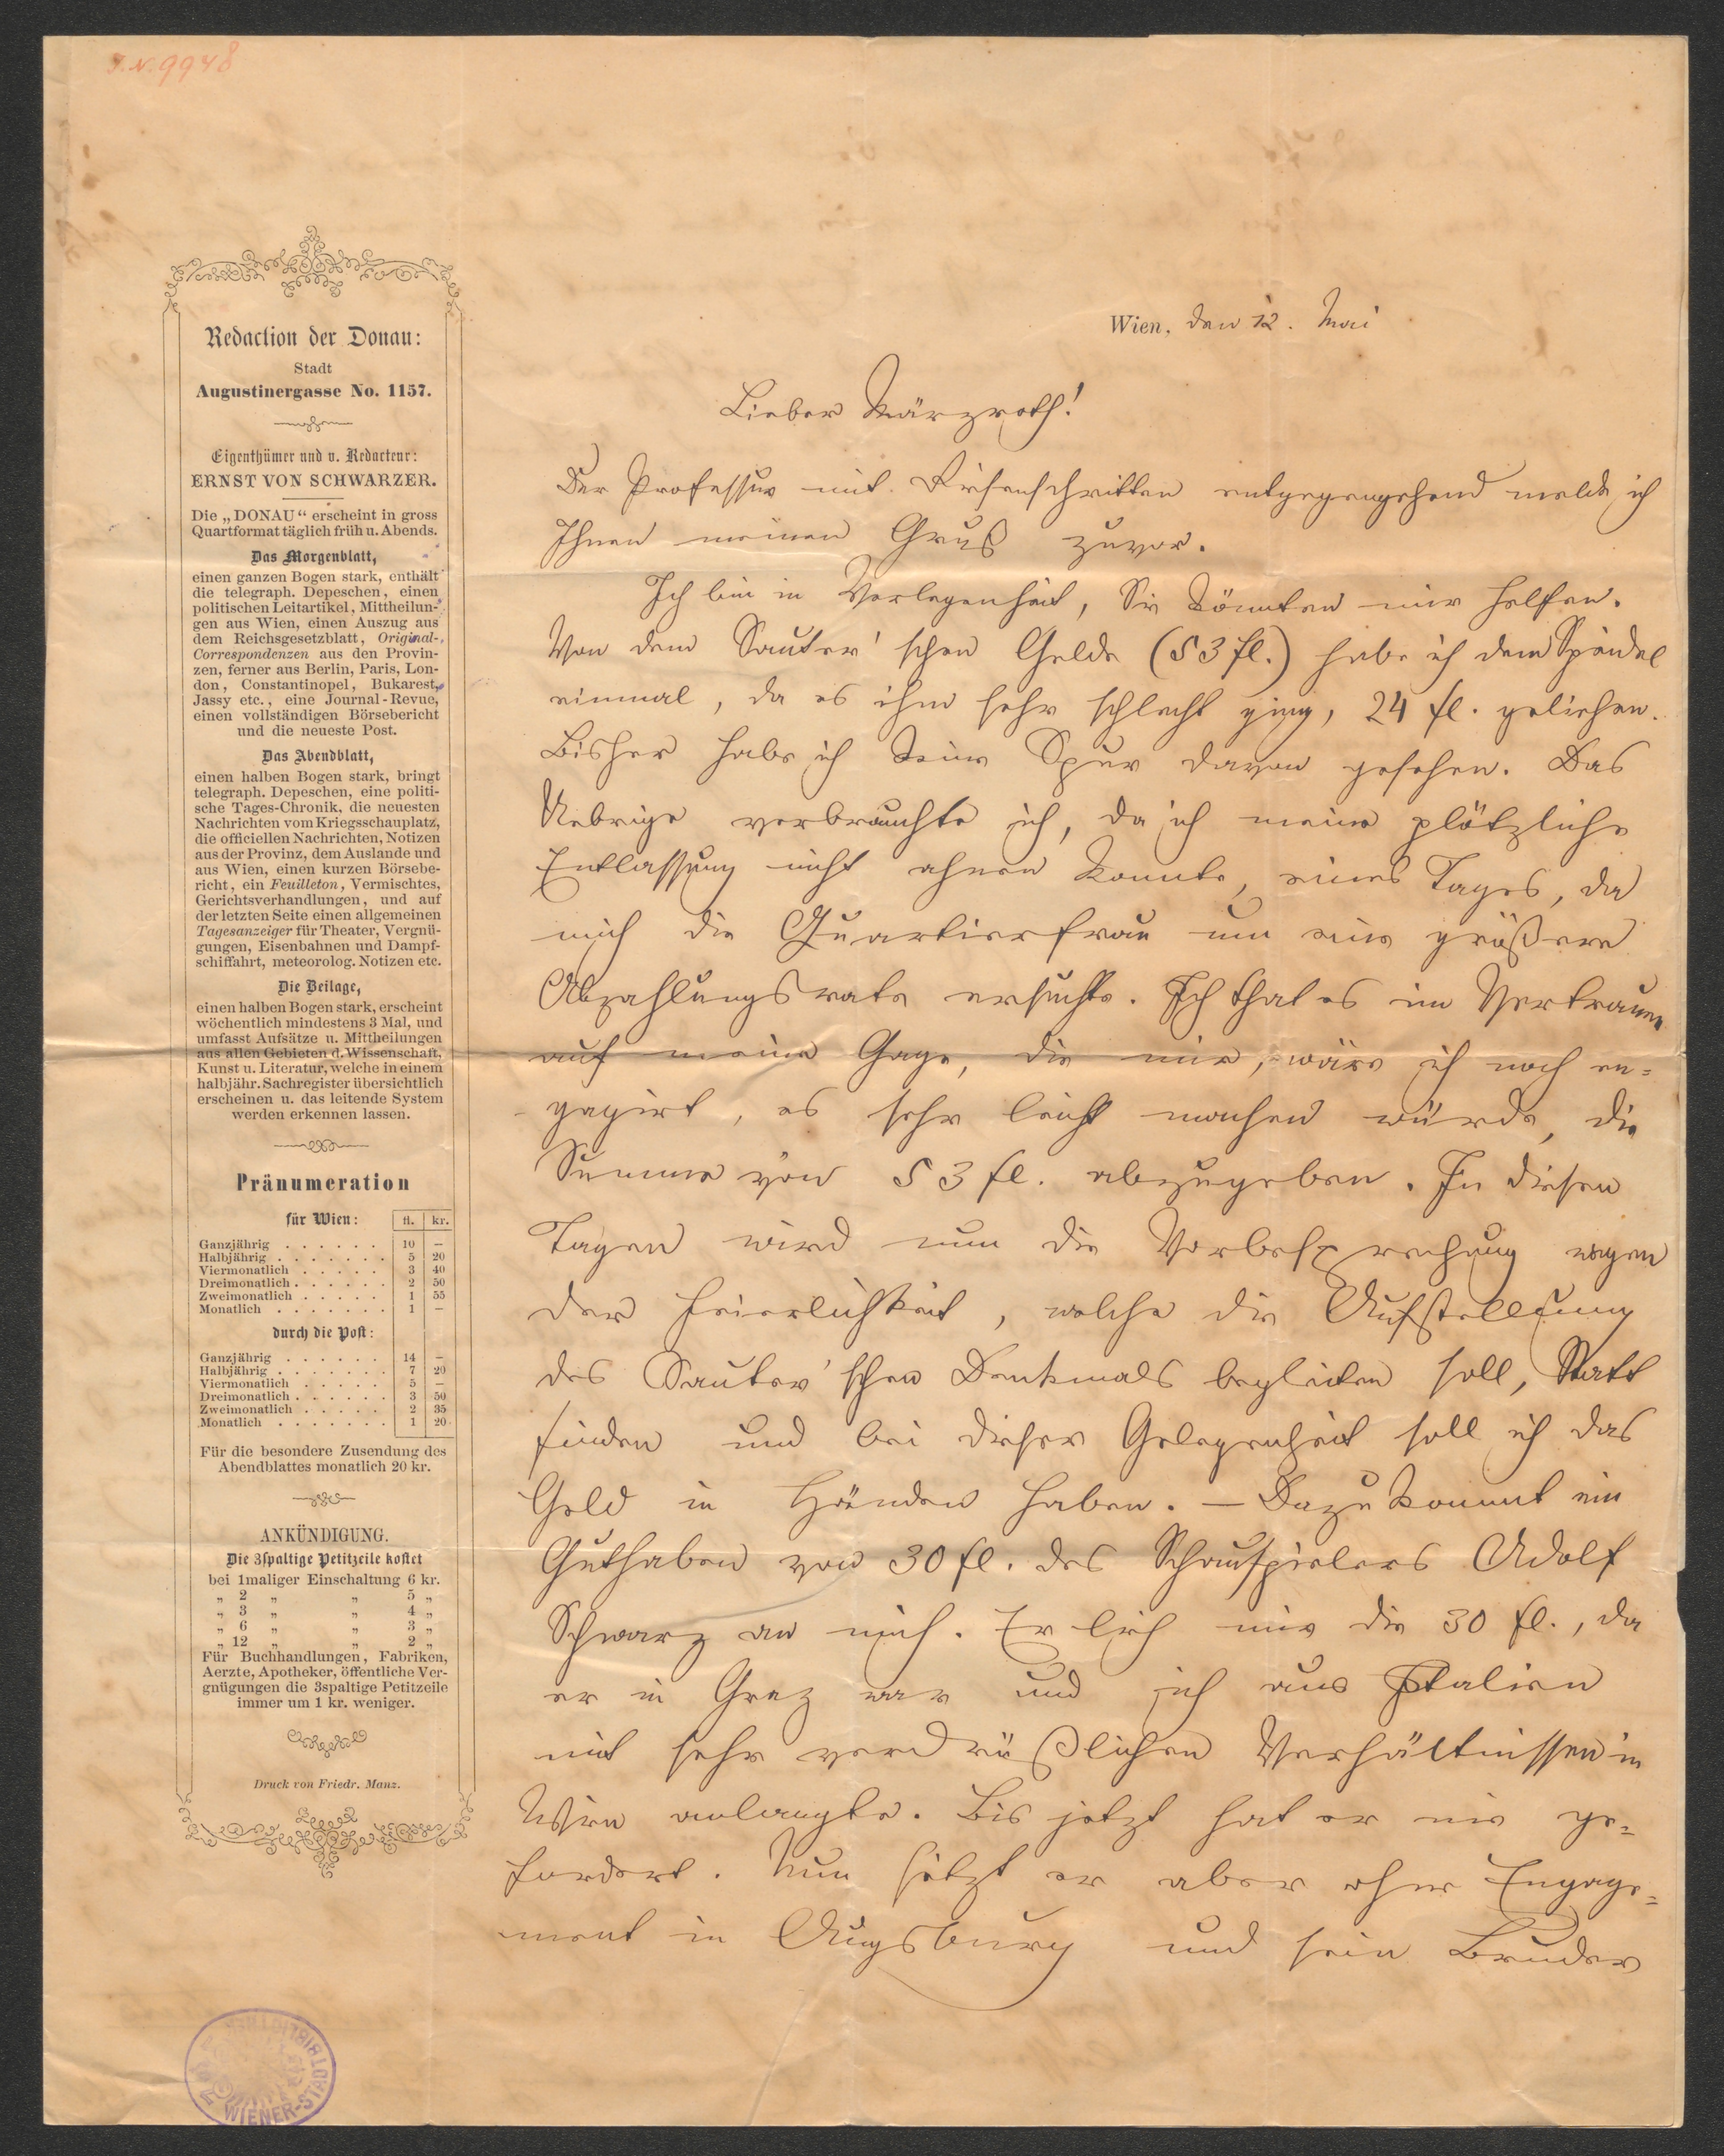 I.N. 9948
Redaction der Donau:
Stadt
Augustinergasse No. 1157.
Eigenthümer und v. Redacteur:
ERNST VON SCHWARZER.
Die „DONAU“ erscheint in gross
Quartformat täglich früh u. Abends.
Das Morgenblatt,
einen ganzen Bogen stark, enthält
die telegraph. Depeschen, einen
politischen Leitartikel, Mittheilun-
gen aus Wien, einen Auszug aus
dem Reichsgesetzblatt, Original-
Correspondenzen aus den Provin-
zen, ferner aus Berlin, Paris, Lon-
don, Constantinopel, Bukarest,
Jassy etc., eine Journal-Revue,
einen vollständigen Börsebericht
und die neueste Post.
Das Abendblatt,
einen halben Bogen stark, bringt
telegraph. Depeschen, eine politi-
sche Tages-Chronik, die neuesten
Nachrichten vom Kriegsschauplatz,
die officiellen Nachrichten, Notizen
aus der Provinz, dem Auslande und
aus Wien, einen kurzen Börsebe-
richt, ein Feuilleton, Vermischtes,
Gerichtsverhandlungen, und auf
der letzten Seite einen allgemeinen
Tagesanzeiger für Theater, Vergnü-
gungen, Eisenbahnen und Dampf-
schiffahrt, meteorolog. Notizen etc.
Die Beilage,
einen halben Bogen stark, erscheint
wöchentlich mindestens 3 Mal, und
umfasst Aufsätze u. Mittheilungen
aus allen Gebieten d. Wissenschaft,
Kunst u. Literatur, welche in einem
halbjähr. Sachregister übersichtlich
erscheinen u. das leitende System
werden erkennen lassen.
Pränumeration
für Wien: fl. kr.
Ganzjährig . . . . . . 10 —
Halbjährig . . . . . . 5 20
Viermonatlich . . . . . 3 40
Dreimonatlich . . . . . . 2 50
Zweimonatlich . . . . . 1 55
Monatlich . . . . . . . 1 —
durch die Post:
Ganzjährig . . . . . . 14 —
Halbjährig . . . . . . . 7 20
Viermonatlich . . . . . 5 —
Dreimonatlich . . . . . . 3 50
Zweimonatlich . . . . . 2 35
Monatlich . . . . . . . 1 20
Für die besondere Zusendung des
Abendblattes monatlich 20 kr.
ANKÜNDIGUNG.
Die 3spaltige Petitzeile kostet
bei 1maliger Einschaltung 6 kr.
„ 2 „ „ 5 „
„ 3 „ „ 4 „
„ 6 „ „ 3 „
„ 12 „ „ 2 „
Für Buchhandlungen, Fabriken,
Aerzte, Apotheker, öffentliche Ver-
gnügungen die 3spaltige Petitzeile
immer um 1 kr. weniger.
Druck von Friedr. Manz.
WIENER-STADTBIBLIOTHEK
Wien, den 12. Mai
Lieber Märzroth!
Der Professur mit Riesenschritten entgegengehend melde ich
Ihnen meinen Gruß zuvor.
Ich bin in Verlegenheit, Sie könnten mir helfen.
Von dem Sauter'schen Gelde (53 fl.) habe ich dem Speidel
einmal, da es ihm sehr schlecht ging, 24 fl. geliehen.
Bisher habe ich keine Spur davon gesehen. Das
Uebrige verbrauchte ich, da ich meine plötzliche
Entlassung nicht ahnen konnte, eines Tages, da
mich die Quartierfrau um eine größere
Abzahlungsrate ersuchte. Ich that es im Vertrauen
auf meine Gage, die mir, wäre ich noch en-
gagirt, es sehr leicht machen würde, die
Summe von 53 fl. abzugeben. In diesen
Tagen wird nun die Vorbesprechung wegen
der Feierlichkeit, welche die Aufstellung
des Sauter'schen Denkmals begleiten soll, Statt
finden und bei dieser Gelegenheit soll ich das
Geld in Händen haben. — Dazu kommt ein
Guthaben von 30 fl. des Schauspielers Adolf
Schwarz an mich. Er lieh mir die 30 fl., da
er in Graz war und ich aus Italien
mit sehr verdrüßlichen Verhältnissen in
Wien anlangte. Bis jetzt hat er nie ge-
fordert. Nun sitzt er aber ohne Engage-
ment in Augsburg und sein Bruder